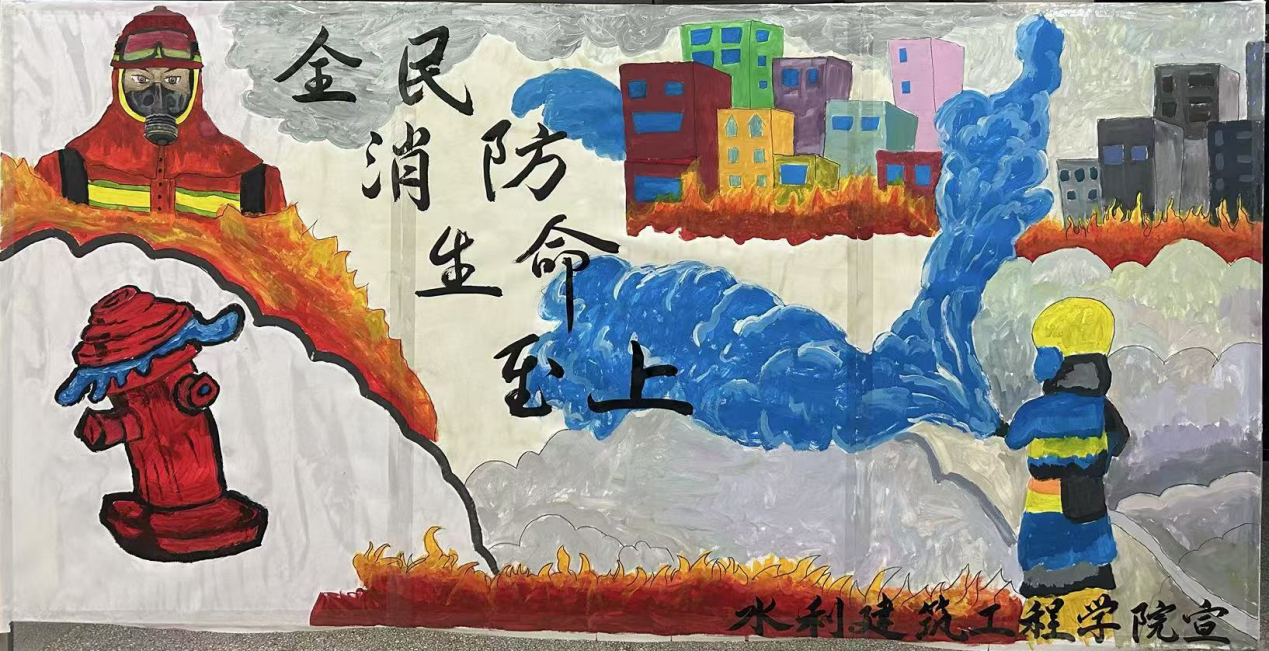 全民
消防
生命
至上
水利建筑工程学院宣